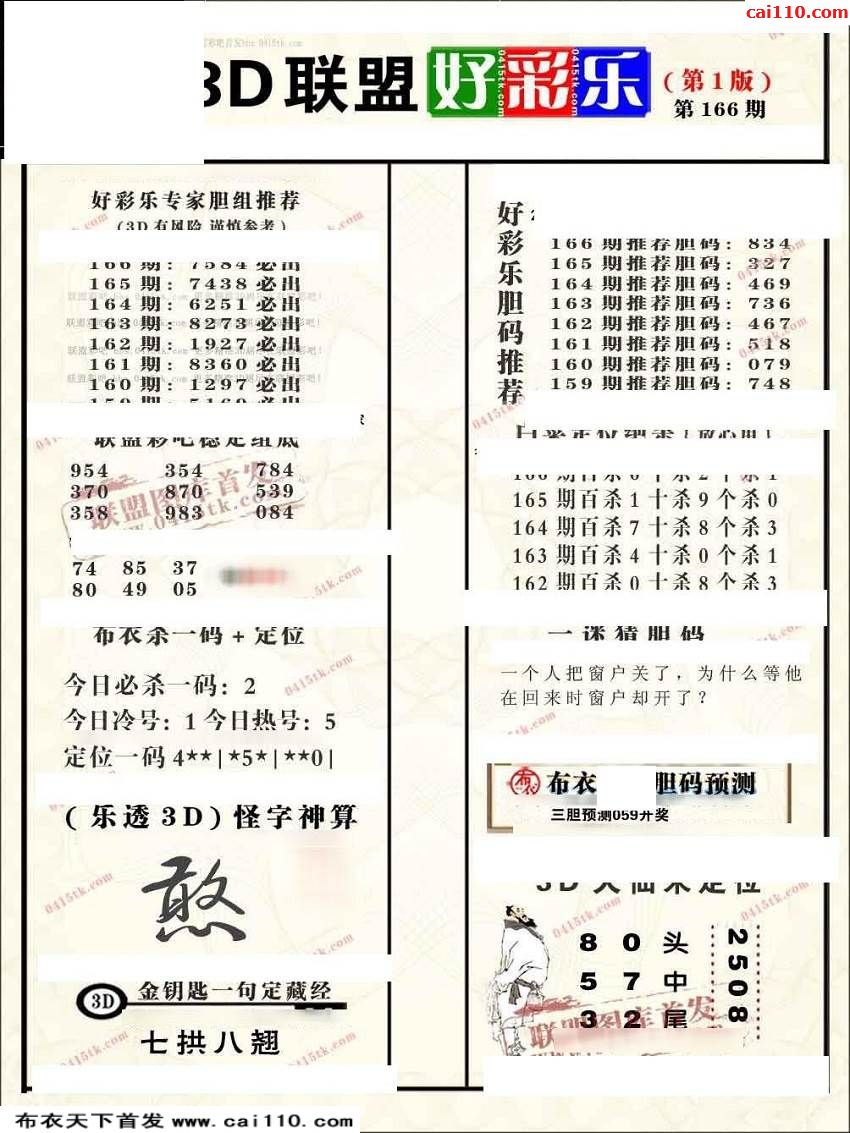 cai110.com
3D联盟好彩乐
(第1版)
第166期
好彩乐专家胆组推荐
(3D有风险 谨慎参考)
166期:7584必出
165期:7438必出
164期:6251必出
163期:8273必出
162期:1927必出
161期:8360必出
160期:1297必出
159期:5160必出
联盟彩吧稳定组底
954 354 784
370 870 539
358 983 084
74 85 37
80 49 05
布衣杀一码+定位
今日必杀一码: 2
今日冷号: 1 今日热号: 5
定位一码 4**|*5*|**0|
(乐透3D)怪字神算
憨
3D 金钥匙一句定藏经
七拱八翘
好彩乐胆码推荐
166期推荐胆码: 834
165期推荐胆码: 327
164期推荐胆码: 469
163期推荐胆码: 736
162期推荐胆码: 467
161期推荐胆码: 518
160期推荐胆码: 079
159期推荐胆码: 748
166期百杀6十杀2个杀1
165期百杀1十杀9个杀0
164期百杀7十杀8个杀3
163期百杀4十杀0个杀1
162期百杀0十杀8个杀3
一谜猜胆码
一个人把窗户关了，为什么等他
在回来时窗户却开了？
布 布衣 胆码预测
三胆预测059开奖
3D大仙来定位
8 0 头
5 7 中
3 2 尾
2508
联盟图库首发
www.0415tk.com
联盟图库首发
0415tk.com
布衣天下首发 www.cai110.com